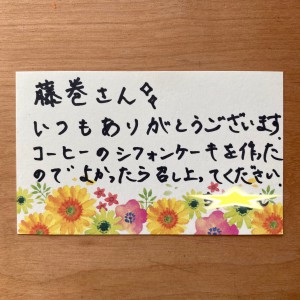 藤巻さん✨
いつもありがとうございます.
コーヒーのシフォンケーキを作った
ので よかったら召し上ってください.